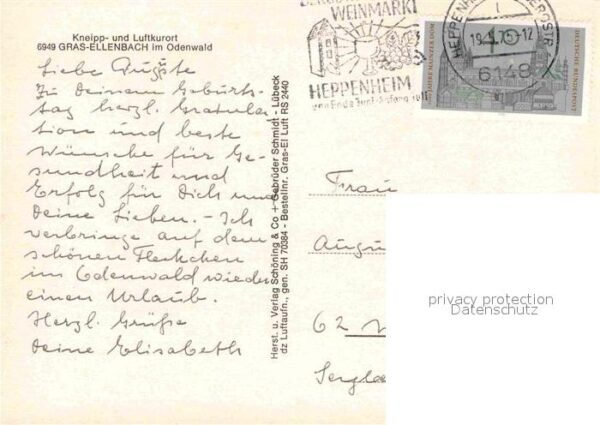 Kneipp- und Luftkurort
6949 GRAS-ELLENBACH im Odenwald
Liebe Auguste
Zu deinem Geburts-
tag herzl. Gratula-
tion und beste
Wünsche für Ge-
sundheit und
Erfolg für Dich und
Deine Lieben. - Ich
verbringe auf dem
schönen Fleckchen
im Odenwald wieder
einen Urlaub.
Herzl. Grüße
Deine Elisabeth
Herst. u. Verlag Schöning & Co + Gebrüder Schmidt - Lübeck
dz Luftaufn., gen. SH 70384 - Bestellnr. Gras-El Luft RS 2440
WEINMARKT
HEPPENHEIM
HEPPENHEIM
19. 75-12
6148
1000 JAHRE MAINZER DOM
DEUTSCHE BUNDESPOST
Frau
Augu
62
privacy protection
Datenschutz